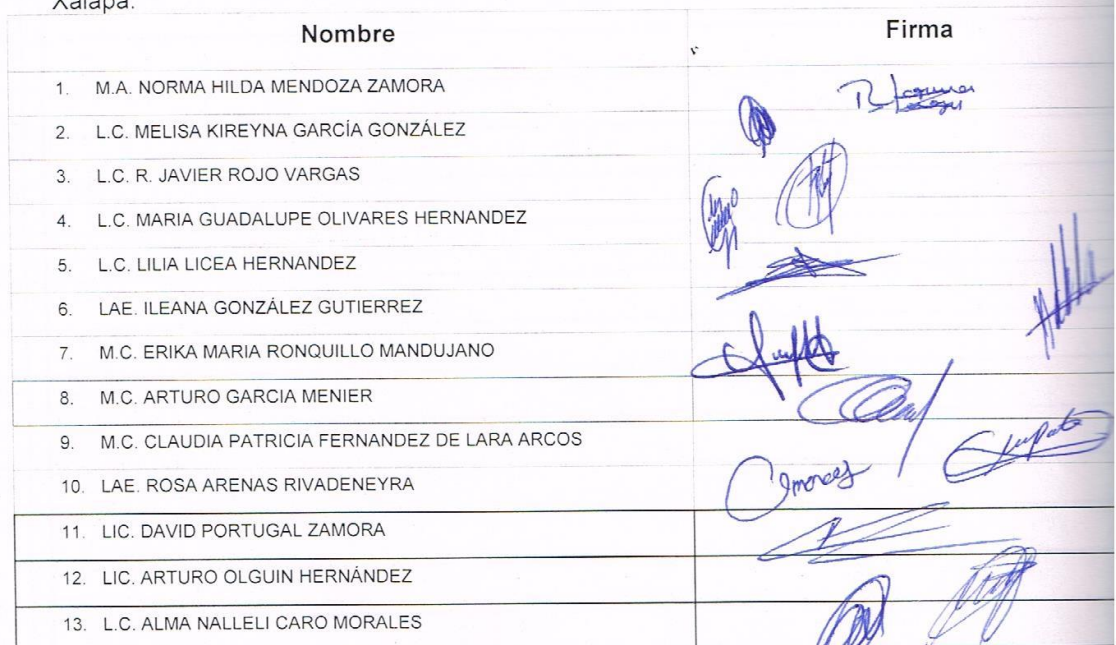 Xalapa.
Nombre Firma
1. M.A. NORMA HILDA MENDOZA ZAMORA
2. L.C. MELISA KIREYNA GARCÍA GONZÁLEZ
3. L.C. R. JAVIER ROJO VARGAS
4. L.C. MARIA GUADALUPE OLIVARES HERNANDEZ
5. L.C. LILIA LICEA HERNANDEZ
6. LAE. ILEANA GONZÁLEZ GUTIERREZ
7. M.C. ERIKA MARIA RONQUILLO MANDUJANO
8. M.C. ARTURO GARCIA MENIER
9. M.C. CLAUDIA PATRICIA FERNANDEZ DE LARA ARCOS
10. LAE. ROSA ARENAS RIVADENEYRA
11. LIC. DAVID PORTUGAL ZAMORA
12. LIC. ARTURO OLGUIN HERNÁNDEZ
13. L.C. ALMA NALLELI CARO MORALES